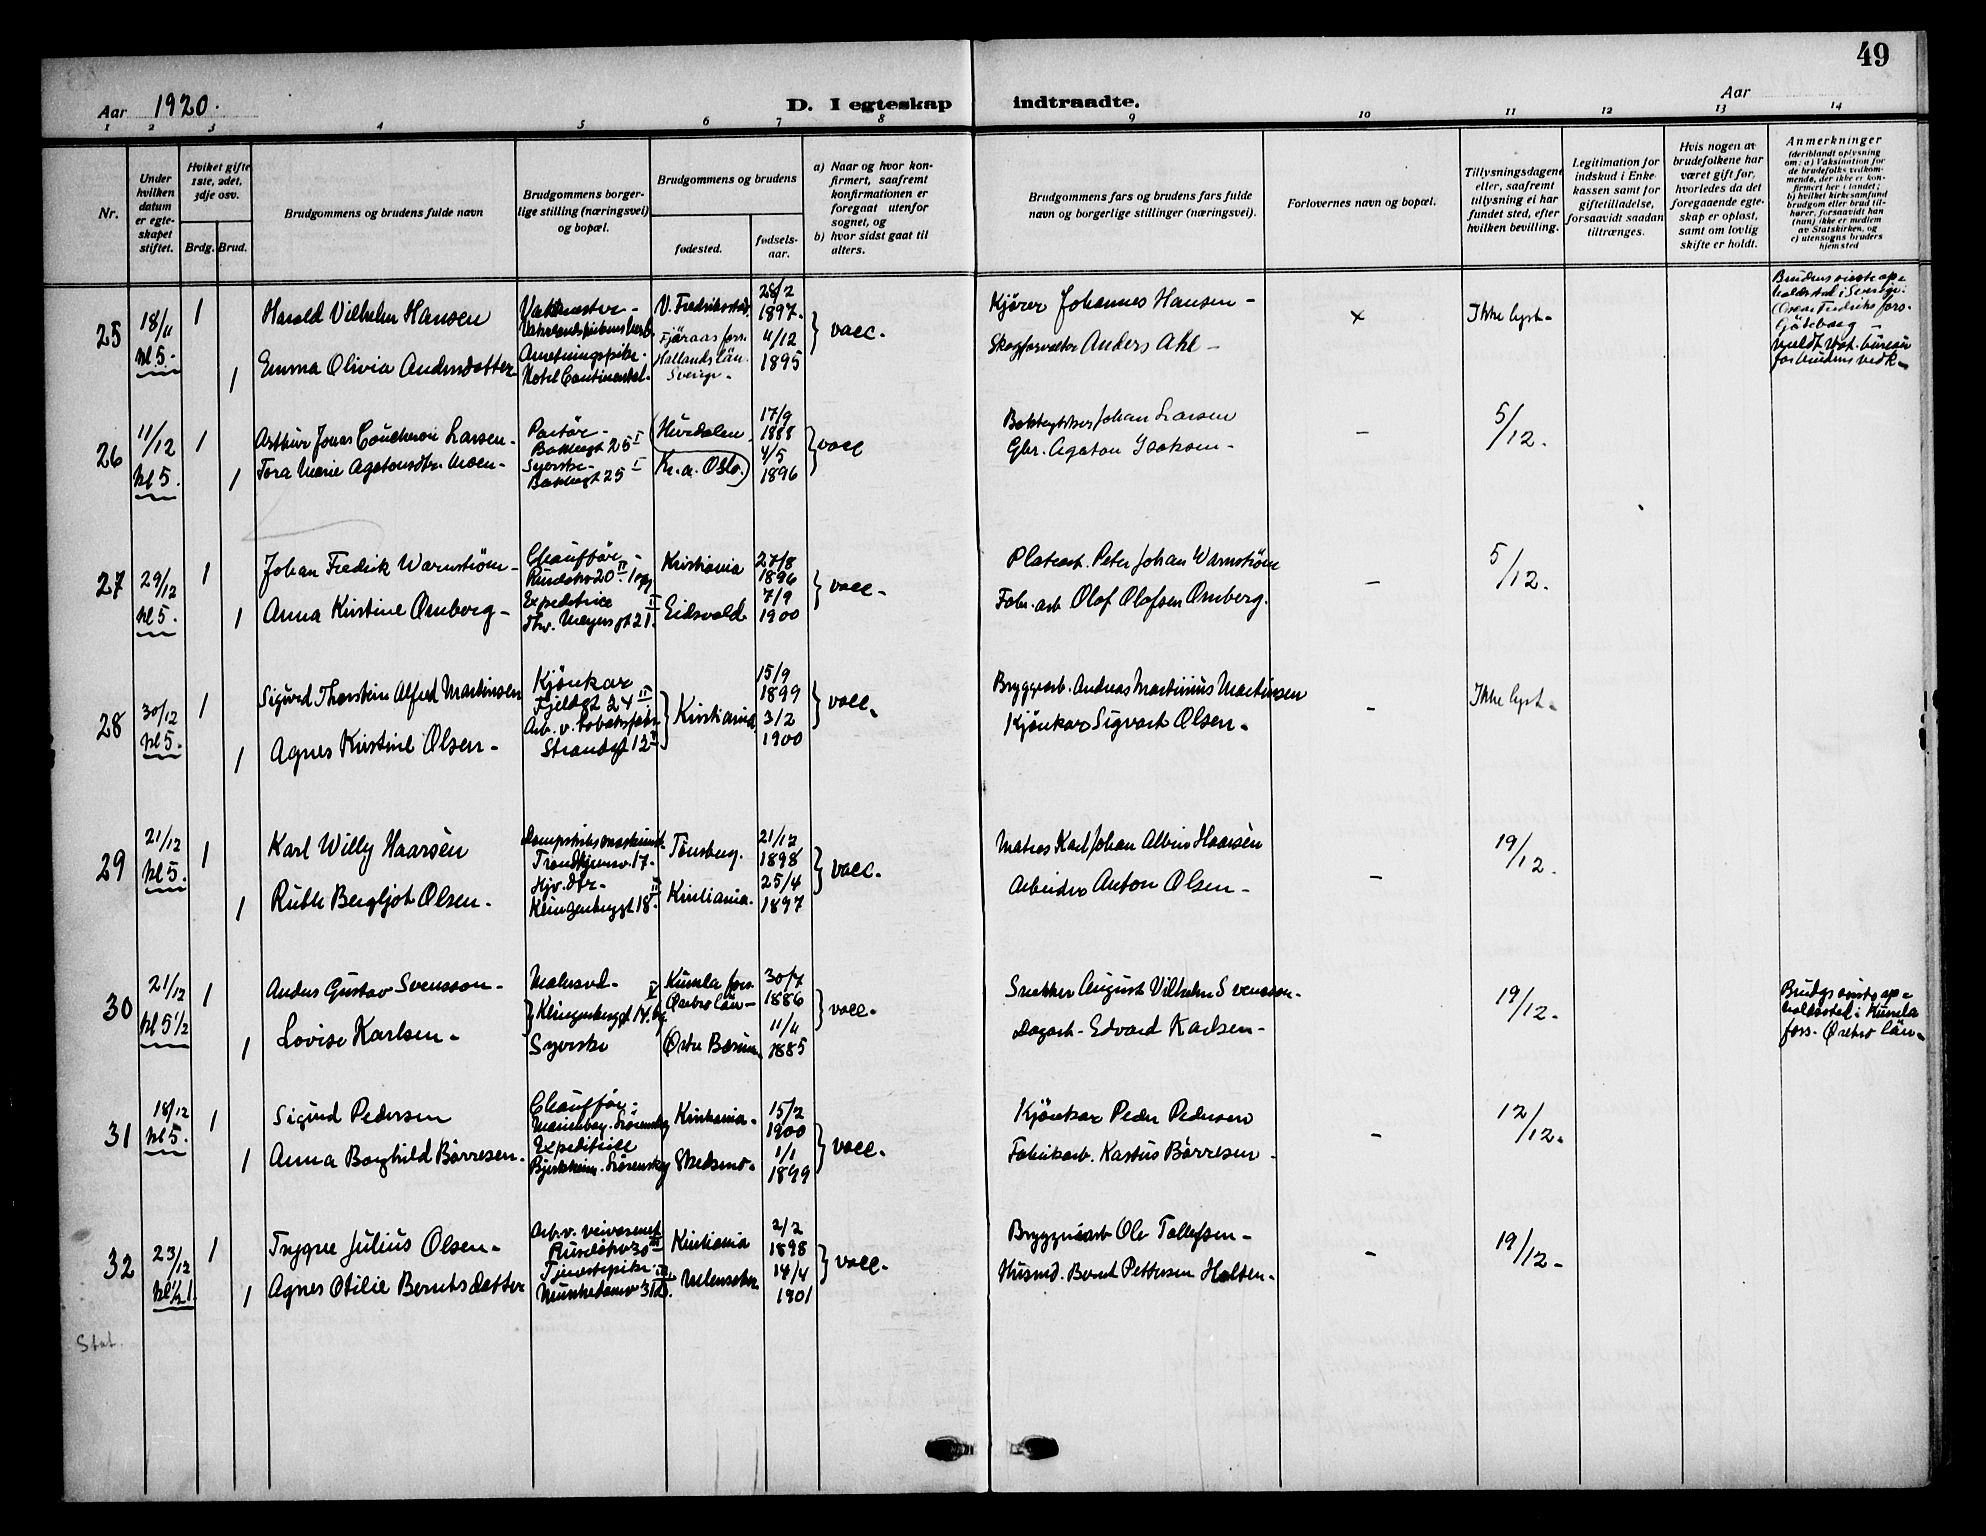 49
Aar 1920.
D. I egteskap indtraadte.
Aar
1 2 3 4 5 6 7 8 9 10 11 12 13 14
Nr.
Under
hvilken
datum
er egte-
skapet
stiftet.
Hvilket gifte
1ste, 2det,
3dje osv.
Brdg. Brud.
Brudgommens og brudens fulde navn
Brudgommens borger-
lige stilling (næringsvei)
og bopæl.
Brudgommens og brudens
fødested.
fødsels-
aar.
a) Naar og hvor kon-
firmert, saafremt
konfirmationen er
foregaat utenfor
sognet, og
b) hvor sidst gaat til
alters.
Brudgommens fars og brudens fars fulde
navn og borgerlige stillinger (næringsvei).
Forlovernes navn og bopæl.
Tillysningsdagene
eller, saafremt
tillysning ei har
fundet sted, efter
hvilken bevilling.
Legitimation for
indskud i Enke-
kassen samt for
giftetilladelse,
forsaavidt saadan
tiltrænges.
Hvis nogen av
brudefolkene har
været gift før,
hvorledes da det
foregaaende egte-
skap er opløst,
samt om lovlig
skifte er holdt.
Anmerkninger
(deriblandt oplysning
om: a) Vaksination for
de brudefolks vedkom-
mende, der ikke er kon-
firmert her i landet;
b) hvilket kirkesamfund
brudgom eller brud til-
hører, forsaavidt han
(hun) ikke er medlem
av Statskirken, og
c) utensogns bruders
hjemsted
25
18/11
kl 5.
1
1
Harald Vilhelm Hansen
Emma Olivia Andersdotter
Vaktmester
Anretningspike
Hotel Continental.
V. Fredrikstad
Fjäraas förs.
Hallands län.
Sverige.
28/2
1897.
4/12
1895
vacc.
Kjører Johannes Hansen
Skogforvalter Anders Ahl
x
Ikke lyst.
Brudens sidste op-
holdssted i Sverige:
Oscar Fredriks förs.
Göteborg
for brudens vedk.
26
11/12
kl 5.
1
1
Arthur Jonas Larsen.
Tora Marie Agatonsdtr. Moen
Bakkegt 25 I
Syerske
Bakkegt 25 I
Hurdalen
Kr.a. Oslo.
17/9
1888
4/5
1896
vacc
Johan Larsen
Gbr. Agaton Isaksen
5/12.
27
29/12
kl 5.
1
1
Johan Fredrik Warnstrøm
Anna Kirstine Ornberg
Chauffør
Ruseløkv 20 II
Expeditrice
Thv. Meyers gt 21. II
Kristiania
Eidsvold
27/8
1896
7/9
1900
vacc.
Platearb. Peter Johan Warnstrøm
Fabr. arb Olof Olofsen Ornberg.
5/12.
28
30/12
kl 5.
1
1
Sigurd Thorstein Alfred Martinsen
Agnes Kristine Olsen
Kjørekar
Fjeldgt 24 II
Arb. v. tobaksfabr.
Strandgt 12 I
Kristiania
15/9
1899
3/2
1900
vacc.
Bryggearb. Andreas Martinius Martinsen
Kjørekar Sigvart Olsen.
Ikke lyst.
29
21/12
kl 5.
1
1
Karl Willy Haarsèn
Ruth Bergljot Olsen.
Dampskibsmaskinist
Trondhjemsv 17.
Hjv. dtr.
Klingenberggt 18. II
Tønsberg.
Kristiania.
21/12
1898
25/4
1897
vacc.
Matros Karl Johan Albin Haarsèn
Arbeider Anton Olsen
19/12.
30
21/12
kl 5 1/2
1
1
Anders Gustav Svensson
Lovise Karlsen
Malersvd.
Klingenberggt 14.
Syerske
Kumla förs.
Örebro län
Østre Bærum
30/7
1886
11/11
1885
vacc.
Snekker August Vilhelm Svensson.
Dagarb. Edvard Karlsen
19/12.
Brudgs. sidste op-
holdssted i Kumla
förs. Örebro län.
31
18/12
kl 5.
1
1
Sigurd Pedersen
Anna Borghild Børresen.
Chauffør
Expeditrice
Kristiania.
Skedsmo.
15/2
1900
1/1
1899
vacc.
Kjørekar Peder Pedersen
Fabrikarb. Kastus Børresen
12/12.
32
23/12
kl 1/2 1.
1
1
Trygve Julius Olsen
Agnes Otilie Berntsdatter
Arb. v. veivesenet
Ruseløkv 30 III
Tjenestepike
Munkedamsv 31
Kristiania
2/2
1898
14/4
1901
vacc.
Bryggeriarb Ole Tollefsen
Husmd. Bernt Pettersen Holten.
19/12
Stat.